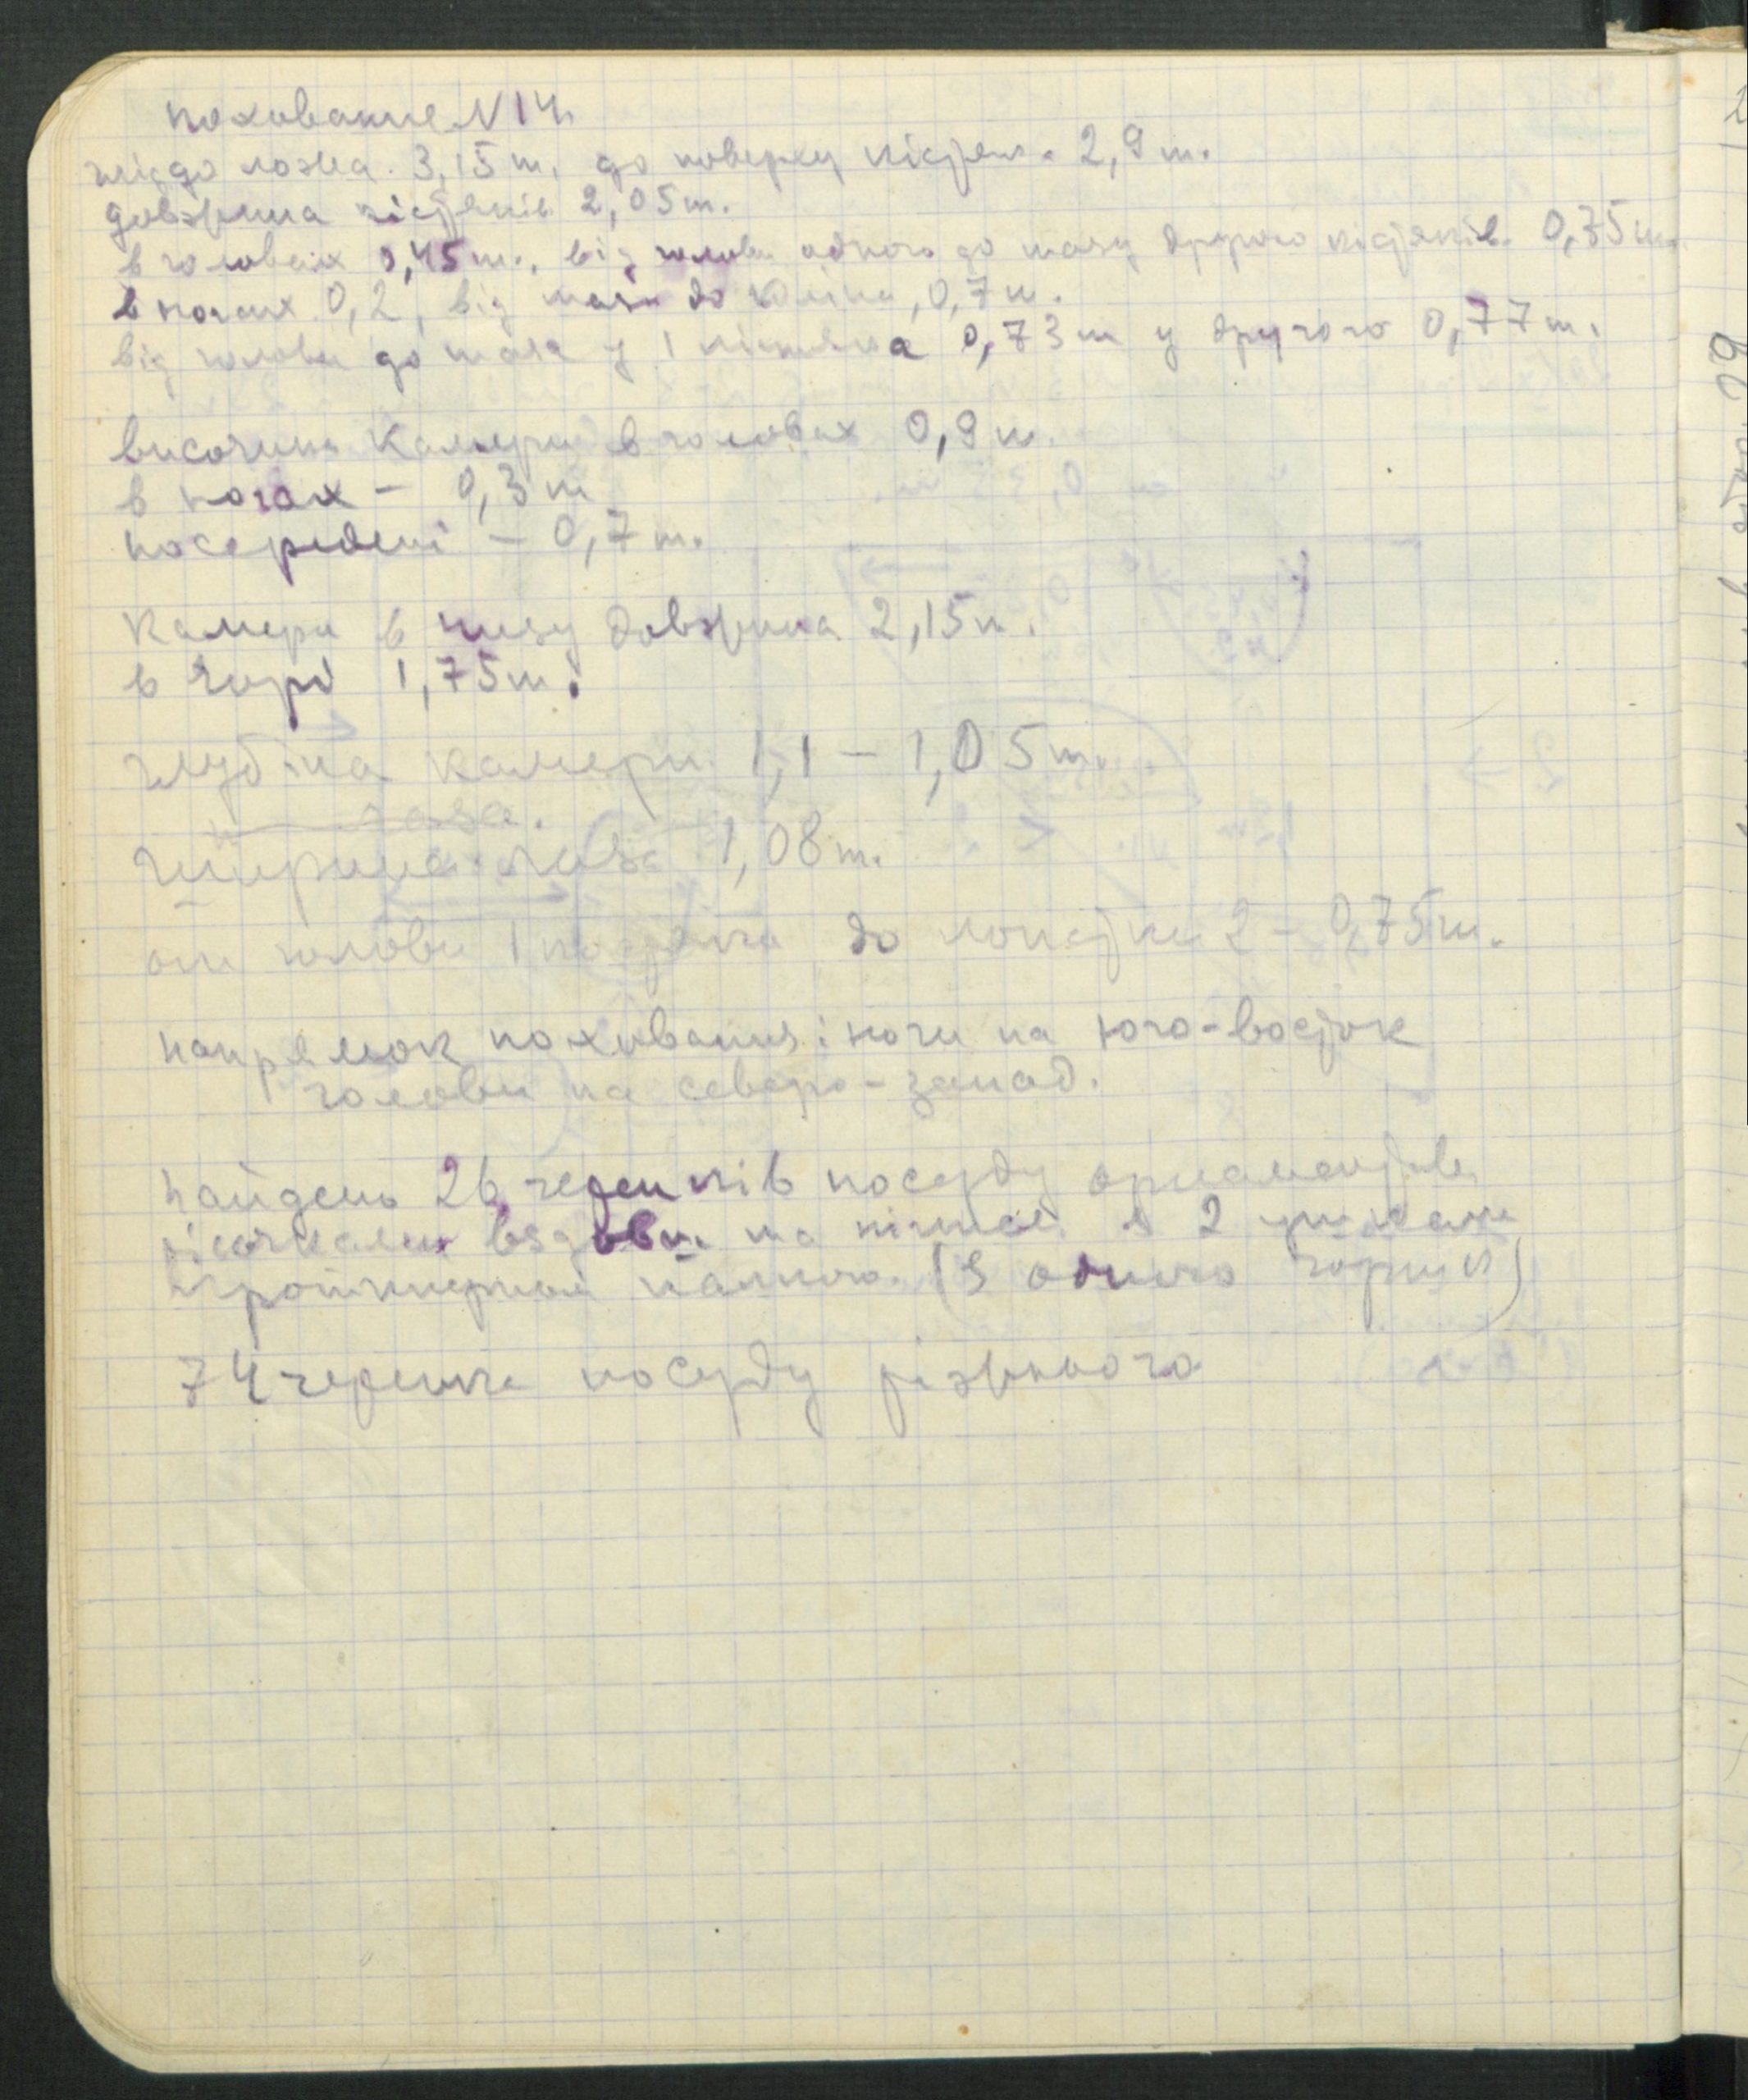 поховання N 14.
до ложа. 3,15 м. до поверху кістяка. 2,9 м.
довжина кістяків 2,05 м.
в головах 0,45 м., від голови одного до тазу другого кістяків. 0,75 м.
в ногах 0,2, від таза до коліна, 0,7 м.
від голови до таза у 1 кістяка 0,73 м у другого 0,77 м.
височина камери в головах 0,9 м.
в ногах - 0,3 м
посередені - 0,7 м.
камери в низу довжина 2,15 м.
в горі 1,75 м.
глубіна камери 1,1 - 1,05 м.
таза.
ширина лаза 1,08 м.
от голови 1 костяка до 2 - 0,75 м.
напрямок поховання: ноги на юго-восток
голови на северо-запад.
найдено 26 черепків посуду
вздовж та 2
(з одного горшка)
74 черепка посуду різного